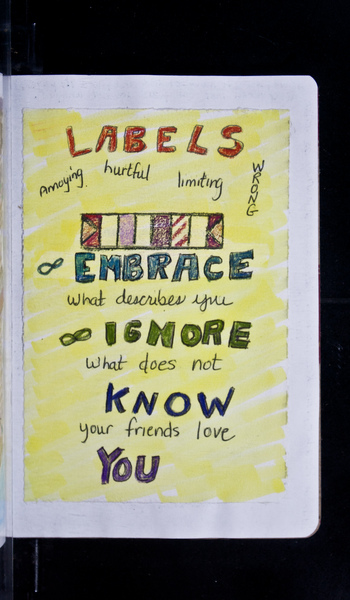 LABELS
Annoying hurtful limiting WRONG
∞ EMBRACE
what describes you
∞ IGNORE
what does not
KNOW
your friends love
YOU